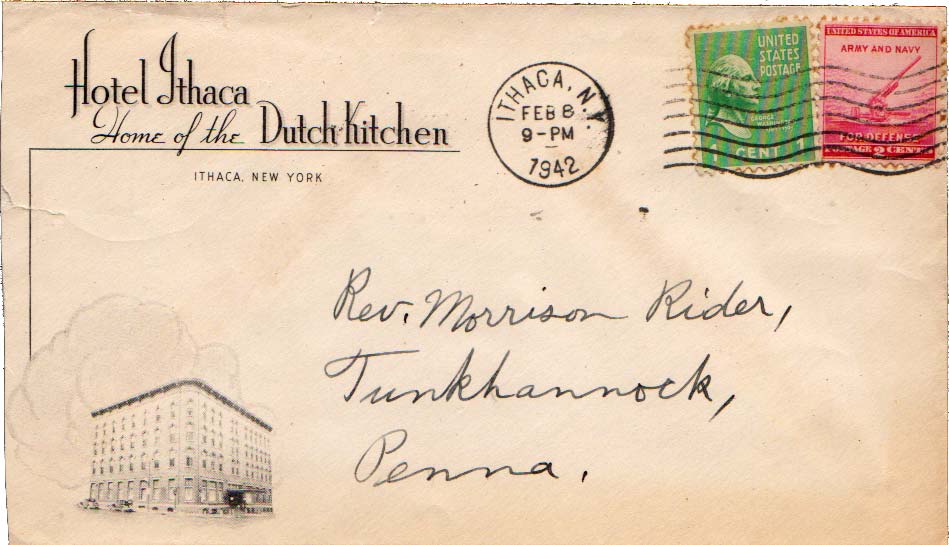 Hotel Ithaca
Home of the Dutch Kitchen
ITHACA, NEW YORK
ITHACA, N.Y.
FEB 8
9-PM
1942
UNITED
STATES
POSTAGE
GEORGE
1 CENT 1
UNITED STATES OF AMERICA
ARMY AND NAVY
FOR DEFENSE
POSTAGE 2 CENTS
Rev. Morrison Rider,
Tunkhannock,
Penna.